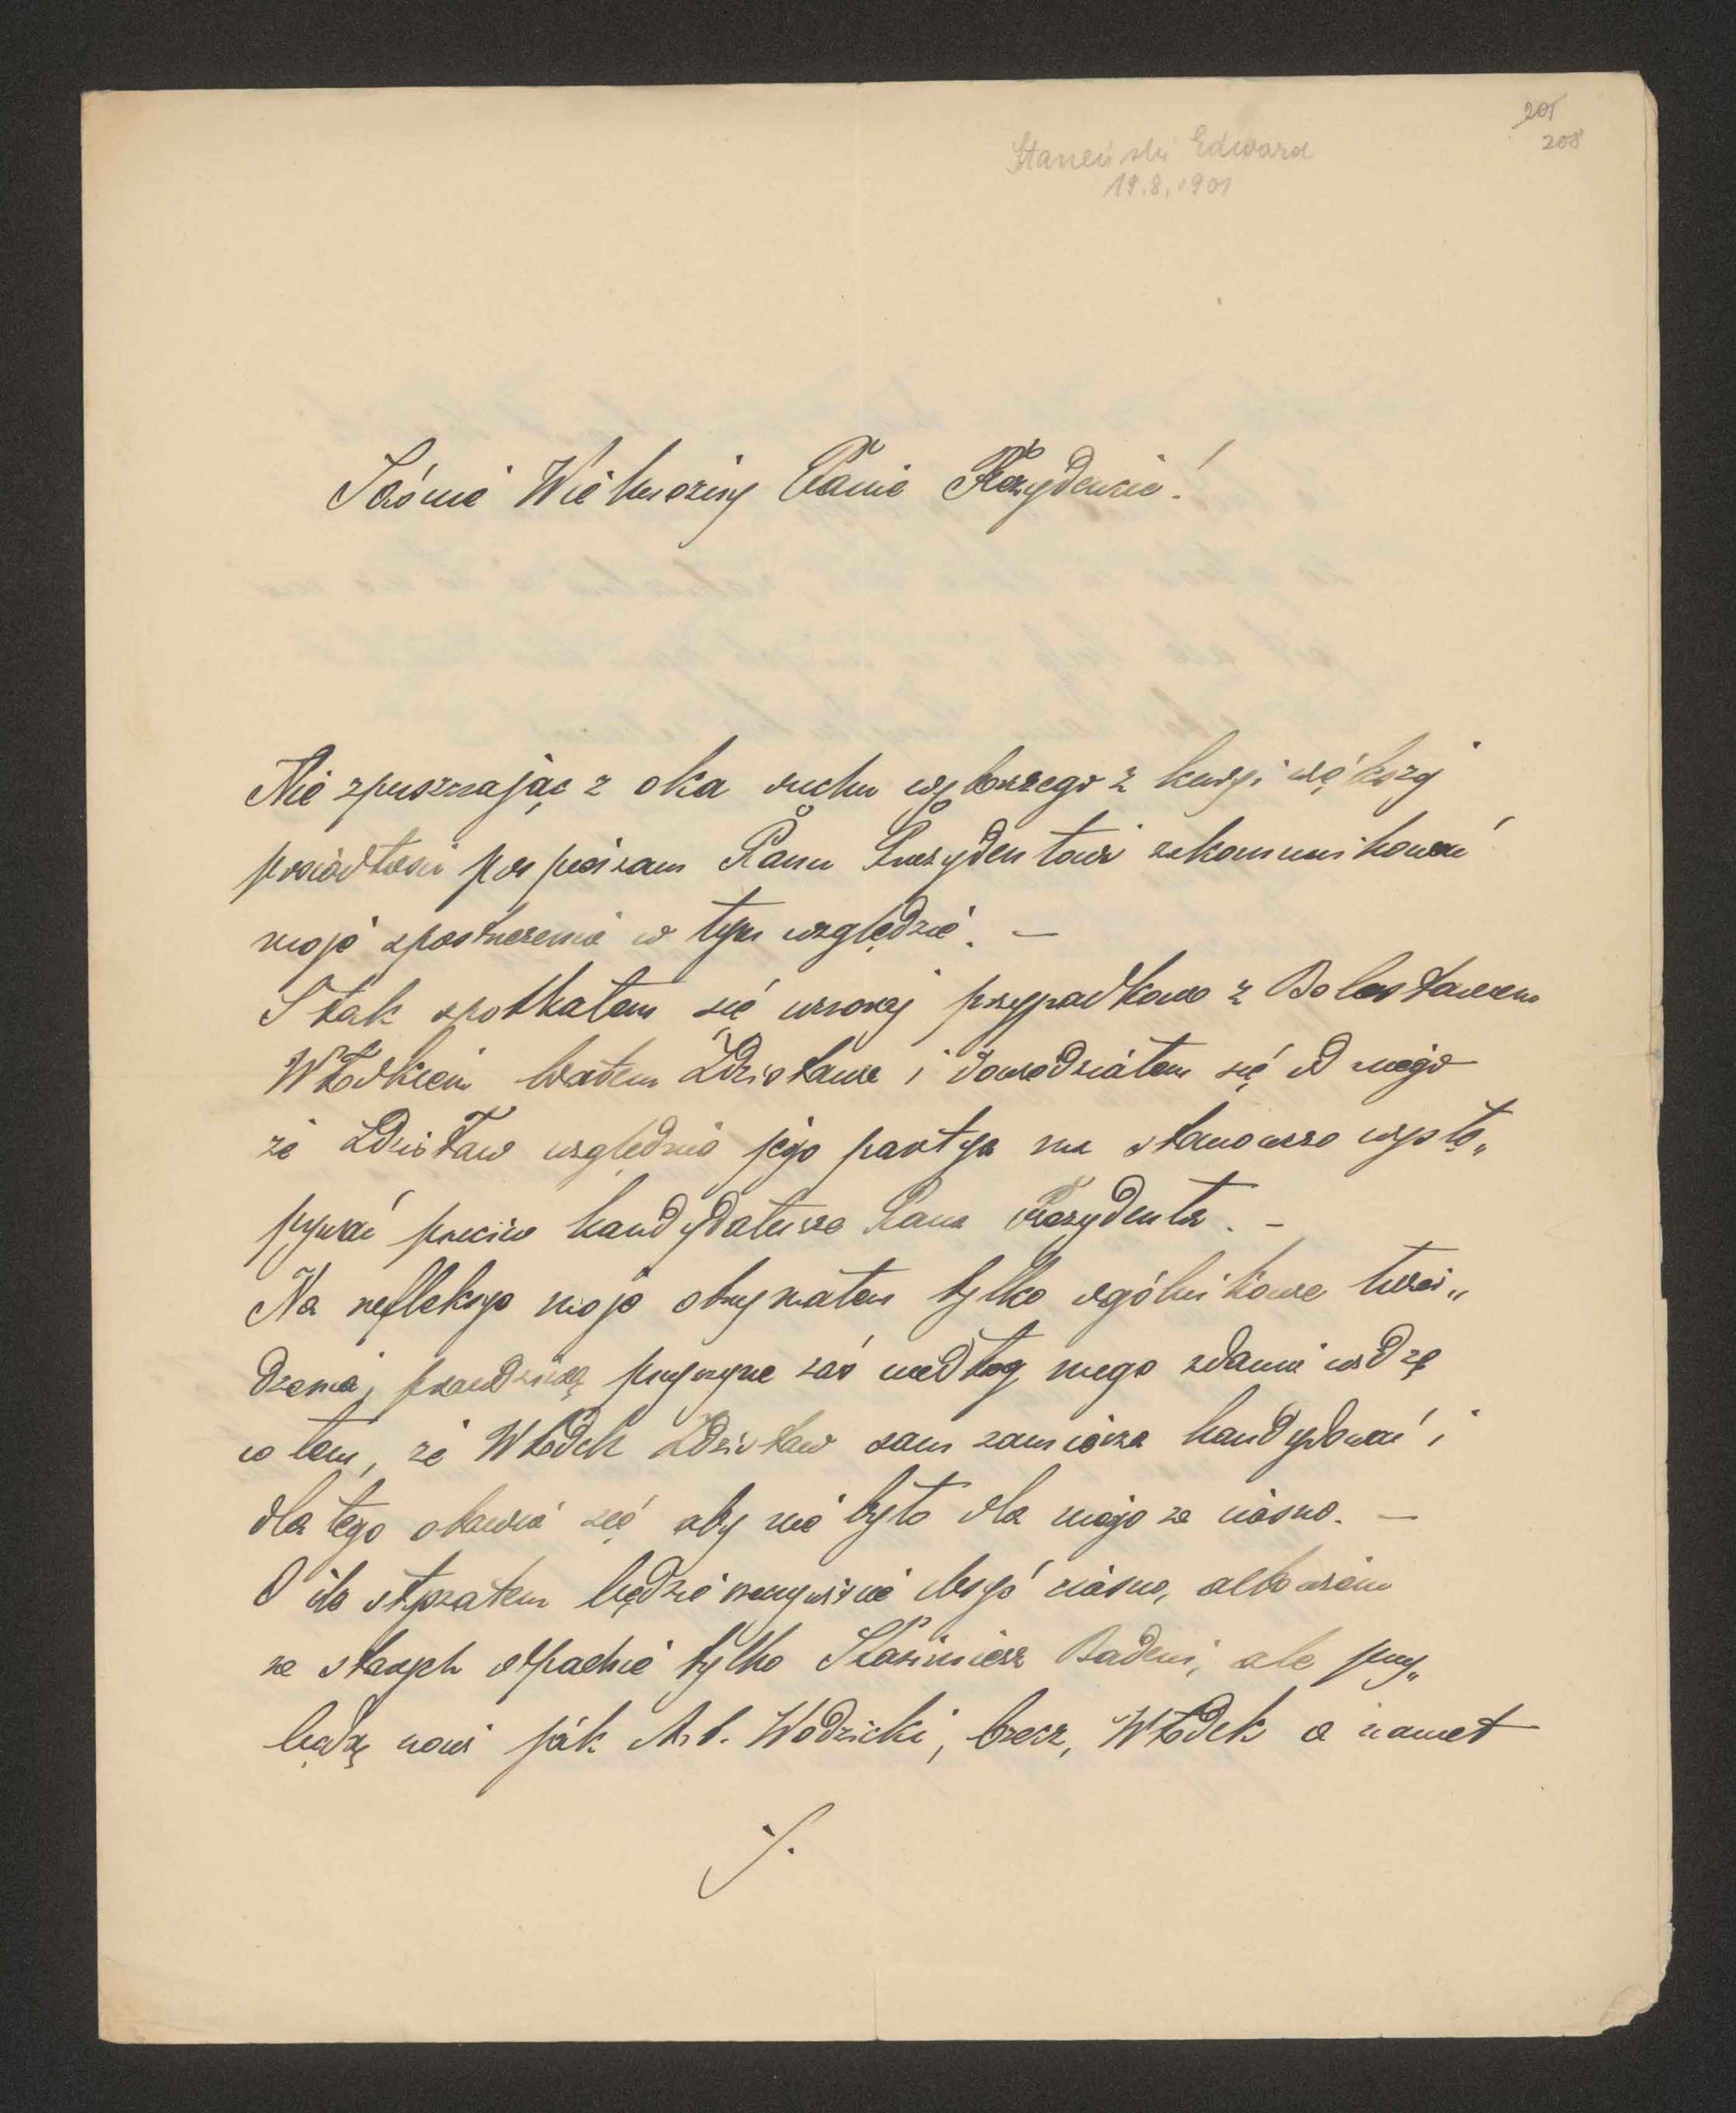 205
208
Stareński Edward
19.8.1901
Jaśnie Wielmożny Panie Prezydencie!
Nie spuszczając z oka ruchu wyborczego z kuryi większej
posiadłości pospieszam Panu Prezydentowi zakomunikować
moje spostrzeżenia w tym względzie. —
I tak spotkałem się wczoraj przypadkowo z Bolesławem
Włodkiem bratem Zdzisława i dowiedziałem się od niego
że Zdzisław względnie jego partya ma stanowczo wystę„
pywać przeciw kandydaturze Pana Prezydenta. –
Na refleksye moje otrzymałem tylko ogólnikowe twier„
dzenia, prawdziwą przyczynę zaś według mego zdania widzę
w tem, że Włodek Zdzisław sam zamierza kandydować i
dla tego obawia się aby nie było dla niego za ciasno. —
O ile słyszałem będzie rzeczywiście dosyć ciasno, albowiem
ze starych odpadnie tylko Kazimierz Badeni, ale przy„
będą nowi jak Ant. Wodzicki, Czecz, Włodek a nawet
./.